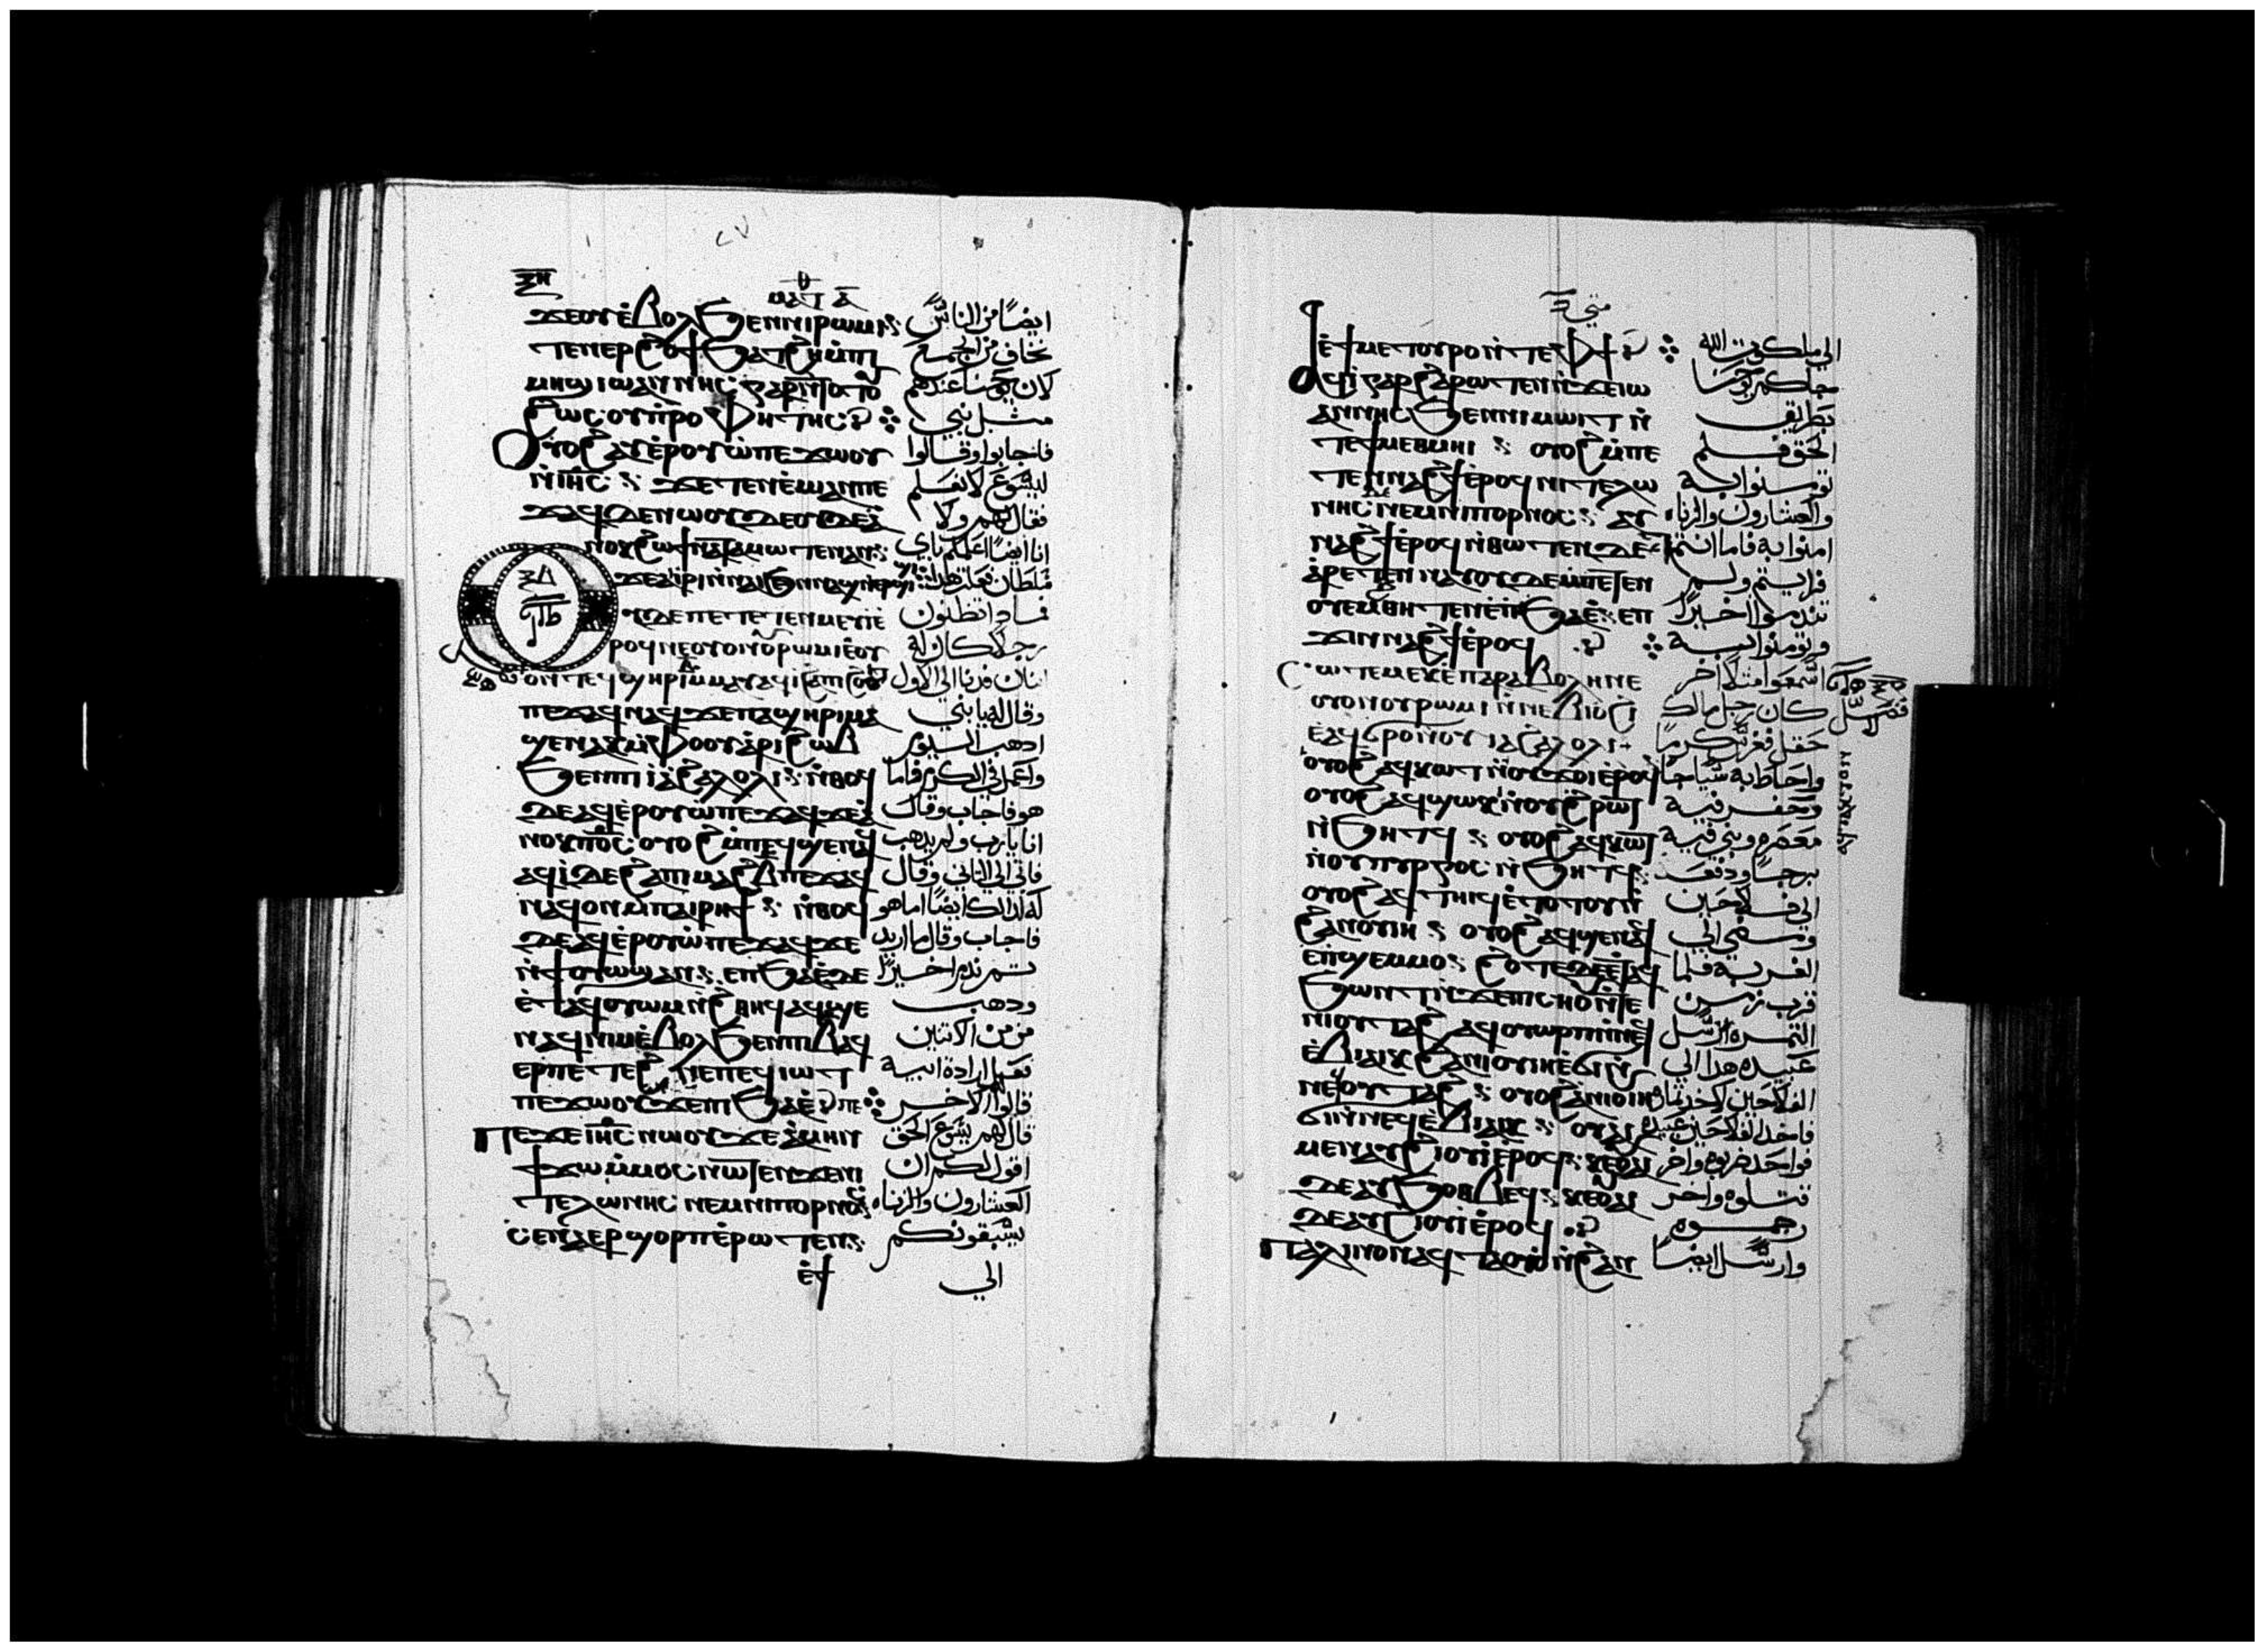 ⲝⲏ
ⲙⲁⲧ ⲁ
ϫⲉⲟⲩⲉ̀ⲃⲟⲗϧⲉⲛⲛⲓⲣⲱⲙⲓ ايضًا من الناس
ⲧⲉⲛⲉⲣϩⲟϯϧⲁⲧϩⲏⲙ̀ⲡⲓ نخاف من الجمع
ⲙⲏϣⲓⲱⲁⲛⲛⲏⲥ ⲅⲁⲣ لان يوحنا عندهم
ϩⲱⲥ ⲟⲩⲡⲣⲟⲫⲏⲧⲏⲥ مثل نبي
ⲟⲩⲟϩⲁⲩⲉ̀ⲣⲟⲩⲱ̀ⲡⲉϫⲱⲟⲩ فاجابوا وقالوا
ⲛ̀ⲓⲏⲥ ϫⲉⲧⲉⲛⲉ̀ⲙⲓⲁⲛⲡⲉ ليسوع لا نعلم
ⲡⲉϫⲁϥϫⲉⲛⲱⲟⲩ فقال لهم ولا
ⲛⲟⲕϩⲱϯⲛⲁⲧⲁⲙⲱⲧⲉⲛⲁⲛ انا ايضًا اعلمكم باي
ϫⲉⲁⲓⲣⲓⲛ̀ⲛⲁⲓϧⲉⲛⲁϣⲛ̀ⲉⲣϣⲓϣⲓ سلطان نعلت هذا
ⲝⲇ
ⲟⲩⲡⲉⲧⲉⲧⲉⲛⲙⲉⲩⲓⲉ̀ ماذا تظنون
ⲣⲟϥⲛⲉⲟⲩⲟⲛⲟⲩⲣⲱⲙⲓⲉ̀ⲟⲩ رجلا كان له
ⲟⲛⲧⲉϥϣⲏⲣⲓⲃ̄ⲙⲙⲁⲩⲁϥⲓ̀ϩⲁⲡⲓϩⲟⲩⲓⲧ ابنان فدنا الي الاول
ⲡⲉϫⲁϥⲛⲁϥϫⲉⲡⲁϣⲏⲣⲓⲙⲁ وقال له يا بني
ϣⲉⲛⲁⲕⲙ̀ⲫⲟⲟⲩⲁⲣⲓϩⲱⲃ اذهب اليوم
ϧⲉⲛⲡⲓⲓⲁϩⲁⲗⲟⲗⲓ ⲛ̀ⲑⲟϥ واعمل في الكرم فاما
ⲇⲉⲁϥⲉ̀ⲣⲟⲩⲱ̀ⲡⲉϫⲁϥϫⲉⲁ̀ هو فاجاب وقال
ⲛⲟⲕⲡⲟ̅ⲥ̅ ⲟⲩⲟϩⲙ̀ⲡⲉϥϣⲉⲛⲁϥ انا يا رب ولم يذهب
ⲁϥⲓ̀ⲇⲉϩⲁⲡⲓⲙⲁϩⲃ̄ⲡⲉϫⲁϥ فاتي الي الثاني وقال
ⲛⲁϥⲟⲛⲙ̀ⲡⲁⲓⲣⲏϯ ⲛ̀ⲑⲟϥ له كذلك ايضًا اما هو
ⲇⲉⲁϥⲉ̀ⲣⲟⲩⲱ̀ⲡⲉϫⲁϥϫⲉ فاجاب وقال ما اريد
ⲛ̀ϯⲟⲩⲱϣⲁⲛ ⲉⲡϧⲁⲉ̀ⲇⲉ ثم ندم اخيرًا
ⲉ̀ⲧⲁϥⲟⲩⲱⲙⲛ̀ϩⲑⲏϥⲁϥϣⲉ وذهب
ⲛⲁϥⲛⲓⲙⲉ̀ⲃⲟⲗϧⲉⲛⲡⲓⲃ̄ⲁϥ من من الاثنين
ⲉⲣⲡⲉⲧⲉϩⲛⲉⲡⲉϥⲓⲱⲧ فعل ارادة ابيه
ⲡⲉϫⲱⲟⲩϫⲉⲡⲓϧⲁⲉ̀ⲡⲉ قالوا الاخر
ⲡⲉϫⲉⲓⲏⲥⲛⲱⲟⲩϫⲉⲁ̀ⲙⲏⲛ قال لهم يسوع الحق
ϯϫⲱⲙ̀ⲙⲟⲥⲛⲱⲧⲉⲛϫⲉⲛⲓ اقول لكم ان
ⲧⲉⲗⲱⲛⲏⲥ ⲛⲉⲙⲛⲓⲡⲟⲣⲛⲟⲥ العشارون والزناه
ⲥⲉⲛⲁⲉⲣϣⲟⲣⲡⲉ̀ⲣⲱⲧⲉⲛ يسبقونكم
ⲉ̀ϯ الي
متي
ⲉ̀ϯⲙⲉⲧⲟⲩⲣⲟⲛ̀ⲧⲉⲫϯ الي ملكوت الله
ⲁϥⲓ̀ⲅⲁⲣϩⲁⲣⲱⲧⲉⲛⲛ̀ϫⲉⲓⲱ جاكم يوحنا
ⲁⲛⲛⲏⲥϧⲉⲛⲛⲓⲙⲱⲓⲧⲛ̀ بطريق
ⲧⲉϯⲙⲉⲑⲙⲏⲓ ⲟⲩⲟϩⲙ̀ⲡⲉ الحق فلم
ⲧⲉⲛⲛⲁϩϯⲉ̀ⲣⲟϥⲛⲓⲧⲉⲗⲱ تومنوا به
ⲛⲏⲥ ⲛⲉⲙⲛⲓⲡⲟⲣⲛⲟⲥ ⲁⲩ والعشارون والزناه
ⲛⲁϩϯⲉ̀ⲣⲟϥⲛ̀ⲑⲱⲧⲉⲛⲇⲉ امنوا به فاما انتم
ⲁⲣⲉⲧⲉⲛⲛⲁⲩⲟⲩⲇⲉⲙ̀ⲡⲉⲧⲉⲛ فرايتم ولم
ⲟⲩⲉⲙⲑⲏⲧⲉⲛⲉ̀ⲡϧⲁⲉ̀ ⲉⲡ تندموا اخيرًا
ϫⲓⲛⲛⲁϩϯⲉ̀ⲣⲟϥ وتومنوا به
ⲥⲱⲧⲉⲙⲉⲕⲉⲡⲁⲣⲁⲃⲟⲗⲏⲛⲉ اسمعوا مثلا اخر
ⲟⲩⲟⲛⲟⲩⲣⲱⲙⲓⲛ̀ⲛⲉⲃⲓⲟϩⲓ كان رجل مالك
ⲉⲁϥϭⲟⲛⲟⲩⲓⲁϩⲁⲗⲟⲗⲓ حقل فغرس كرمًا
ⲟⲩⲟϩⲁϥⲕⲱⲧⲛ̀ⲟⲩϫⲟⲓⲉ̀ⲣⲟϥ واحاط به سياجًا
ⲟⲩⲟϩⲁϥϣⲱⲕⲛ̀ⲟⲩϩⲣⲱⲧ وحفر فيه
ⲛ̀ϧⲏⲧϥ ⲟⲩⲟϩⲁϥⲕⲱⲧ معصره وبني فيه
ⲛ̀ⲟⲩⲡⲩⲣⲅⲟⲥ ⲛ̀ϧⲏⲧϥ برجًا ودفعه
ⲟⲩⲟϩⲁϥⲧⲏⲓϥⲉ̀ⲧⲟⲧⲟⲩⲛ̀ الي فلاحين
ϩⲁⲛⲟⲩⲓⲏ ⲟⲩⲟϩⲁϥϣⲉⲛⲁϥ ومضي الي
ⲉ̀ⲡϣⲉⲙⲙⲟ ϩⲟⲧⲉⲇⲉⲉ̀ⲧⲁϥ الغربه فلما
ϧⲱⲛⲧⲛ̀ϫⲉⲡⲥⲏⲟⲩⲛ̀ⲧⲉ قرب زمن
ⲛⲓⲟⲩⲧⲁϩ ⲁϥⲟⲩⲱⲣⲡⲛ̀ⲛⲉϥ الثمره ارسل
ⲉ̀ⲃⲓⲁⲓⲕϩⲁⲛⲓⲟⲩⲓⲏⲉ̀ϭⲓⲛ̀ عبيده هذا الي
ⲛⲉϥⲟⲩⲧⲁϩ ⲟⲩⲟϩⲁⲛⲓⲟⲩⲓⲏ الفلاحين لاخذ ثماره
ϭⲓⲛ̀ⲛⲉϥⲉ̀ⲃⲓⲁⲓⲕ ⲟⲩⲁⲓ فاخذ الفلاحين عبيده
ⲙⲉⲛⲁⲩϩⲓⲟⲩⲓⲉ̀ⲣⲟϥ ⲕⲉⲟⲩⲁⲓ فواحد ضربوه واخر
ⲇⲉⲁⲩϧⲟⲑⲃⲉϥ ⲕⲉⲟⲩⲁⲓ قتلوه واخر
ⲇⲉⲁⲩϩⲓⲟⲩⲓⲉ̀ⲣⲟϥ رجموه
ⲡⲁⲗⲓⲛⲟⲛⲁϥⲧⲁⲟⲩⲟⲛ̀ϩⲁⲛ وارسل ايضا